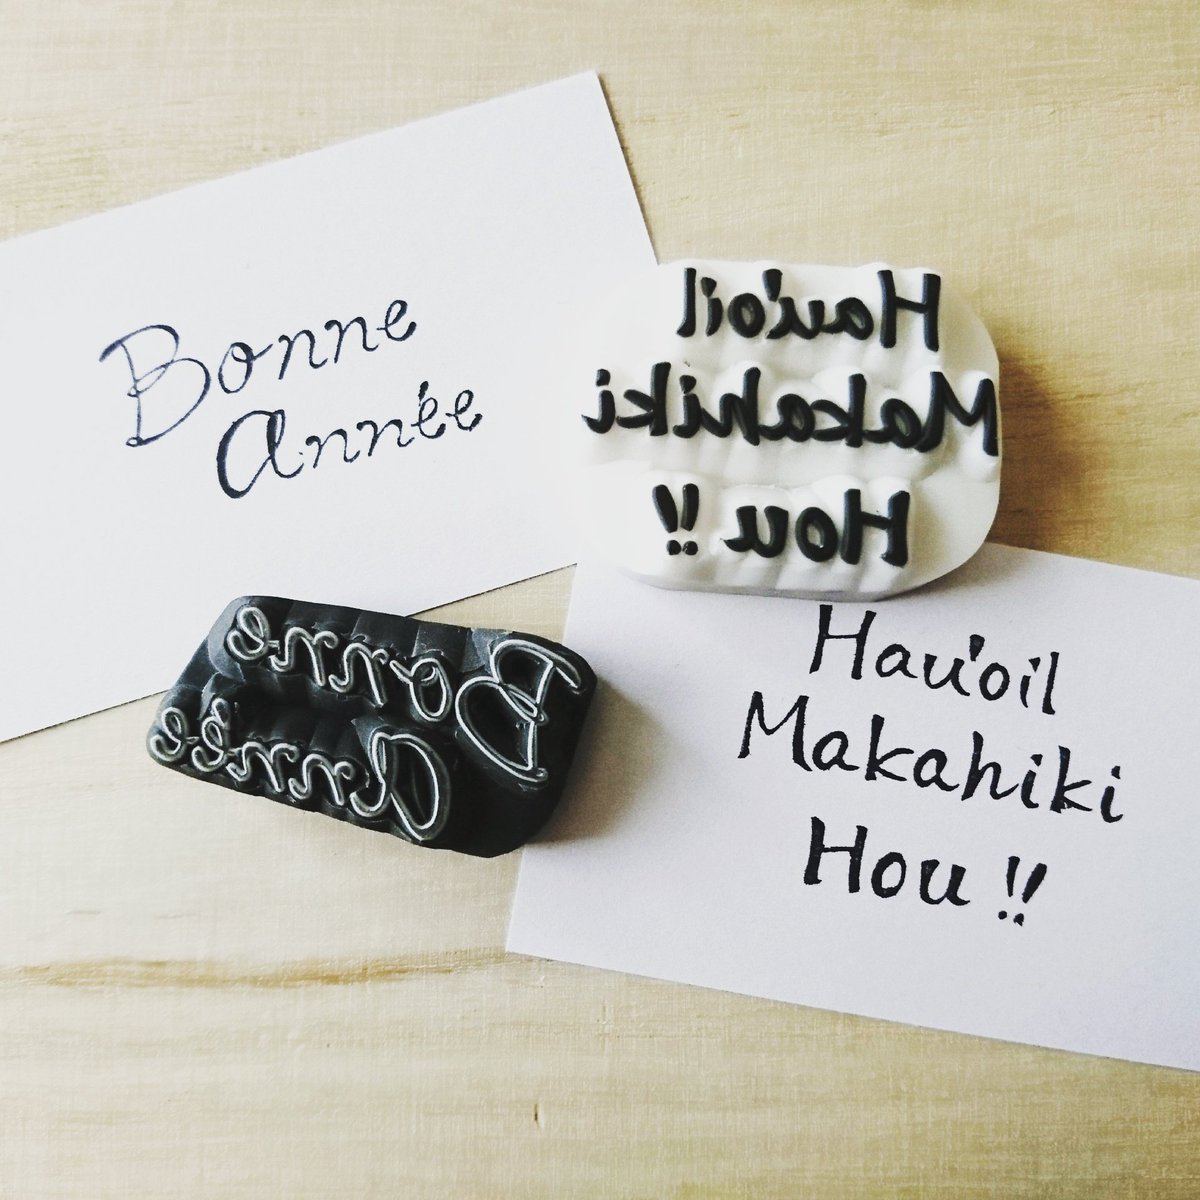 Bonne
Année
Hau'oil
Makahiki
Hou !!
Bonne
Année
Hau'oil
Makahiki
Hou !!